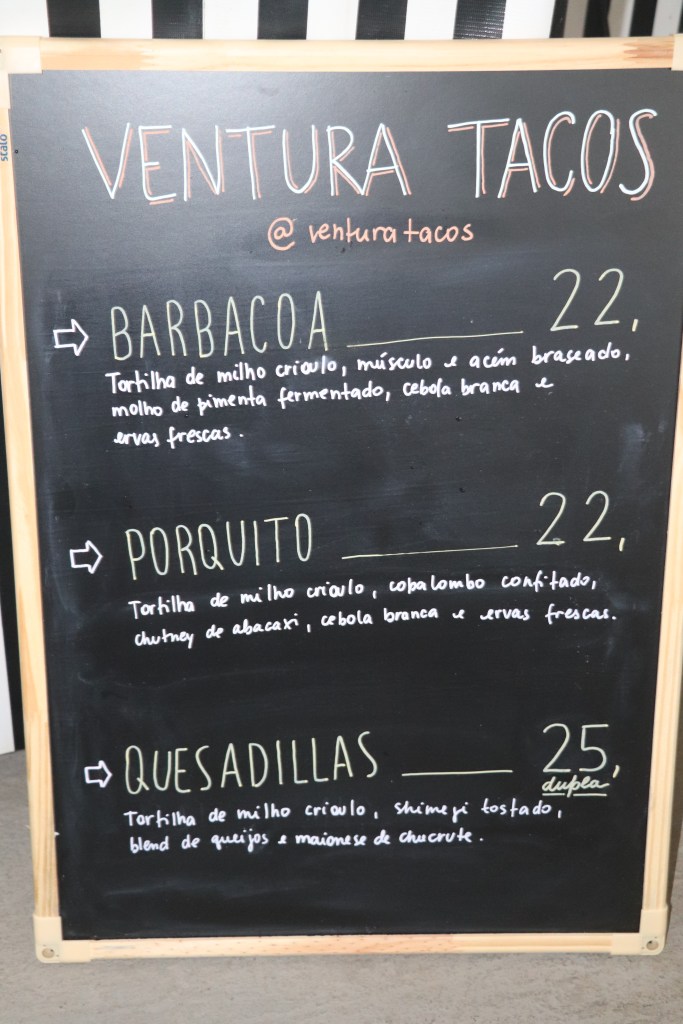 stalo
VENTURA TACOS
@venturatacos
BARBACOA 22,
Tortilha de milho crioulo, músculo e acém braseado,
molho de pimenta fermentado, cebola branca e
ervas frescas.
PORQUITO 22,
Tortilha de milho crioulo, copalombo confitado,
chutney de abacaxi, cebola branca e ervas frescas.
QUESADILLAS 25,
dupla
Tortilha de milho crioulo, shimeji tostado,
blend de queijos e maionese de chucrute.